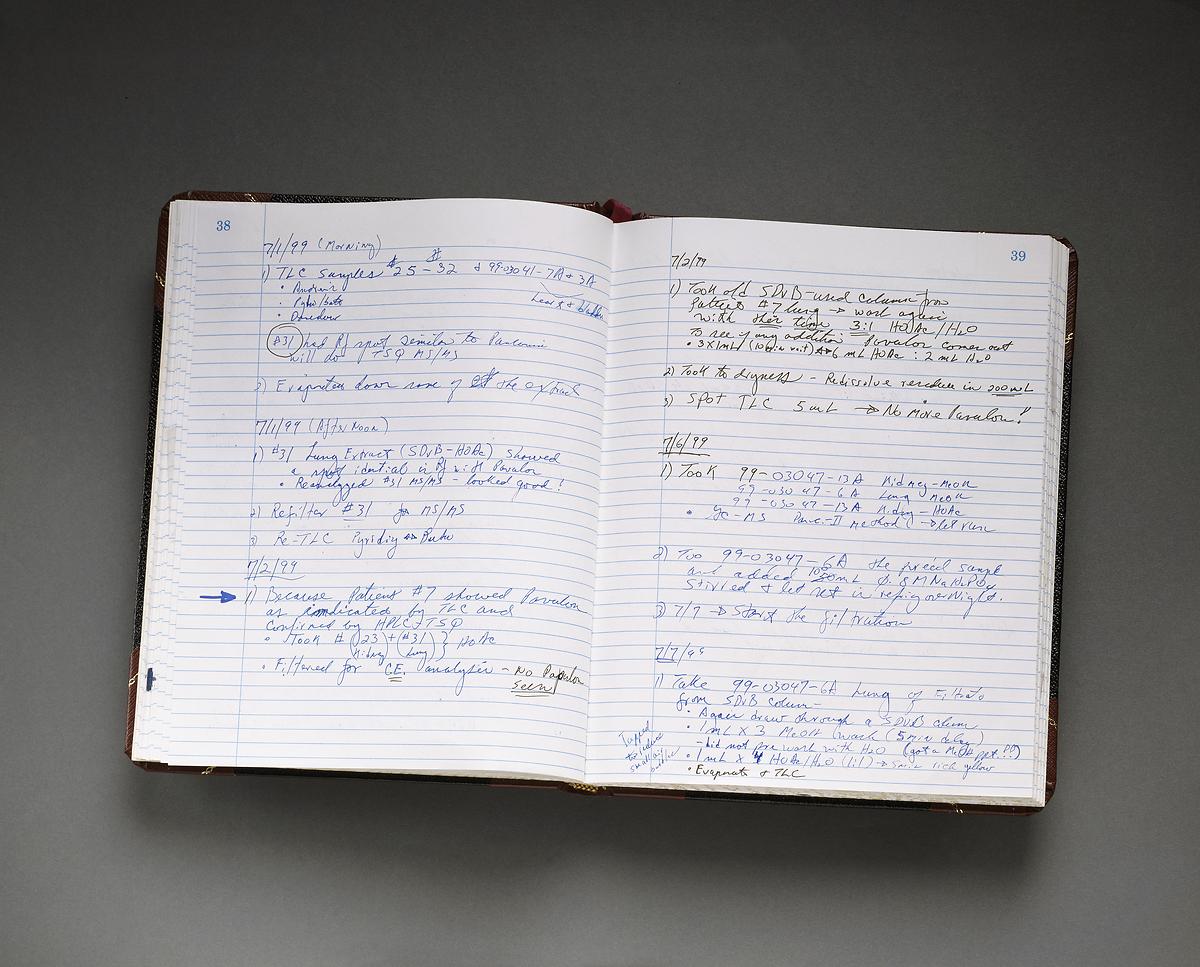 38
7/1/99 (Morning)
1) TLC samples #25 - #32 & 99-03041-7A & 3A
Heart & bladder
#31 had Rf spot similar to
will do TSQ MS/MS
2) down some of the extract
7/1/99 (After Noon)
1) #31 Lung Extract (SDvB-HOAc) showed
a spot identical in Rf with Pavalon
• Reanalyzed #31 MS/MS - looked good!
2) Refilter #31 for MS/MS
3) Re-TLC
7/2/99
1) Because Patient #7 showed Pavalon
as indicated by TLC and
confirmed by HPLC-TSQ
• Took # (23) + (#31) } HOAc
Kidney Lung
• Filtered for CE analysis - No Pavalon
Seen
39
7/2/99
1) Took old SDvB-used column from
Patient #7 lung → wash again
with this time 3:1 HOAc/H2O
To see if any addition Pavalon comes out
• 3X1mL (10 min wait) 6 mL HOAc : 2 mL H2O
2) Took to dryness - Redissolve residue in 200
3) Spot TLC 5 → No More Pavalon!
7/6/99
1) Took 99-03047-13A Kidney-MeOH
99-03047-6A Lung MeOH
99-03047-13A Kidney-HOAc
• GC-MS method → let run
2) Too 99-03047-6A the sample
and added 0.8M NaH2PO4
Stirred & let rest in refrig overNight.
3) 7/7 → Start the filtration
7/7/99
1) Take 99-03047-6A Lung of Filtrate
from SDvB column-
• Again draw through a SDvB column
• 1mL X 3 MeOH wash (5 min delay)
- did not pre wash with H2O (got a MeOH ppt.!!)
• 1mL X 4 HOAc/H2O (1:1) → 5mL rich yellow
• Evaporate & TLC
Tapped
to
small air